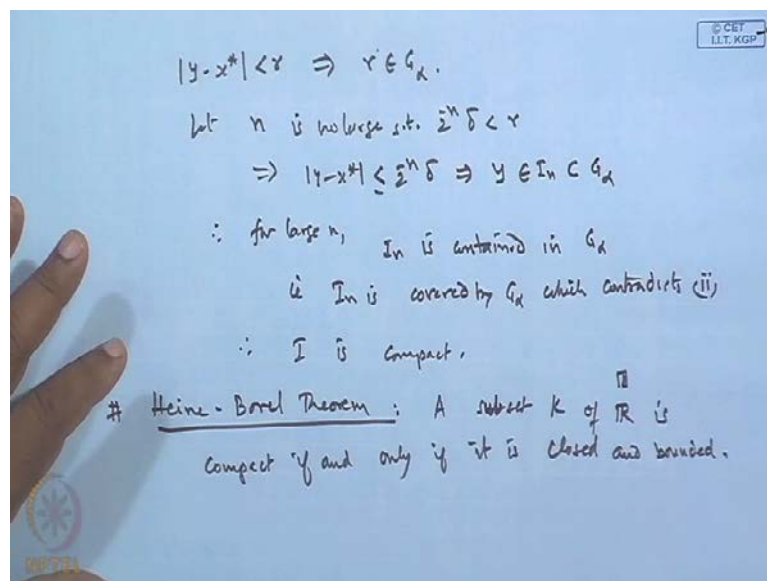 © CET
I.I.T. KGP
|y-x*| < r ⇒ r ∈ G_α.
Let n is so large s.t. 2^{-n} δ < r
⇒ |y-x*| ≤ 2^{-n} δ ⇒ y ∈ I_n ⊂ G_α
∴ for large n, I_n is contained in G_α
i.e. I_n is covered by G_α which contradicts (ii)
∴ I is compact.
# Heine-Borel Theorem : A subset K of ℝ is
compact if and only if it is closed and bounded.
NPTEL